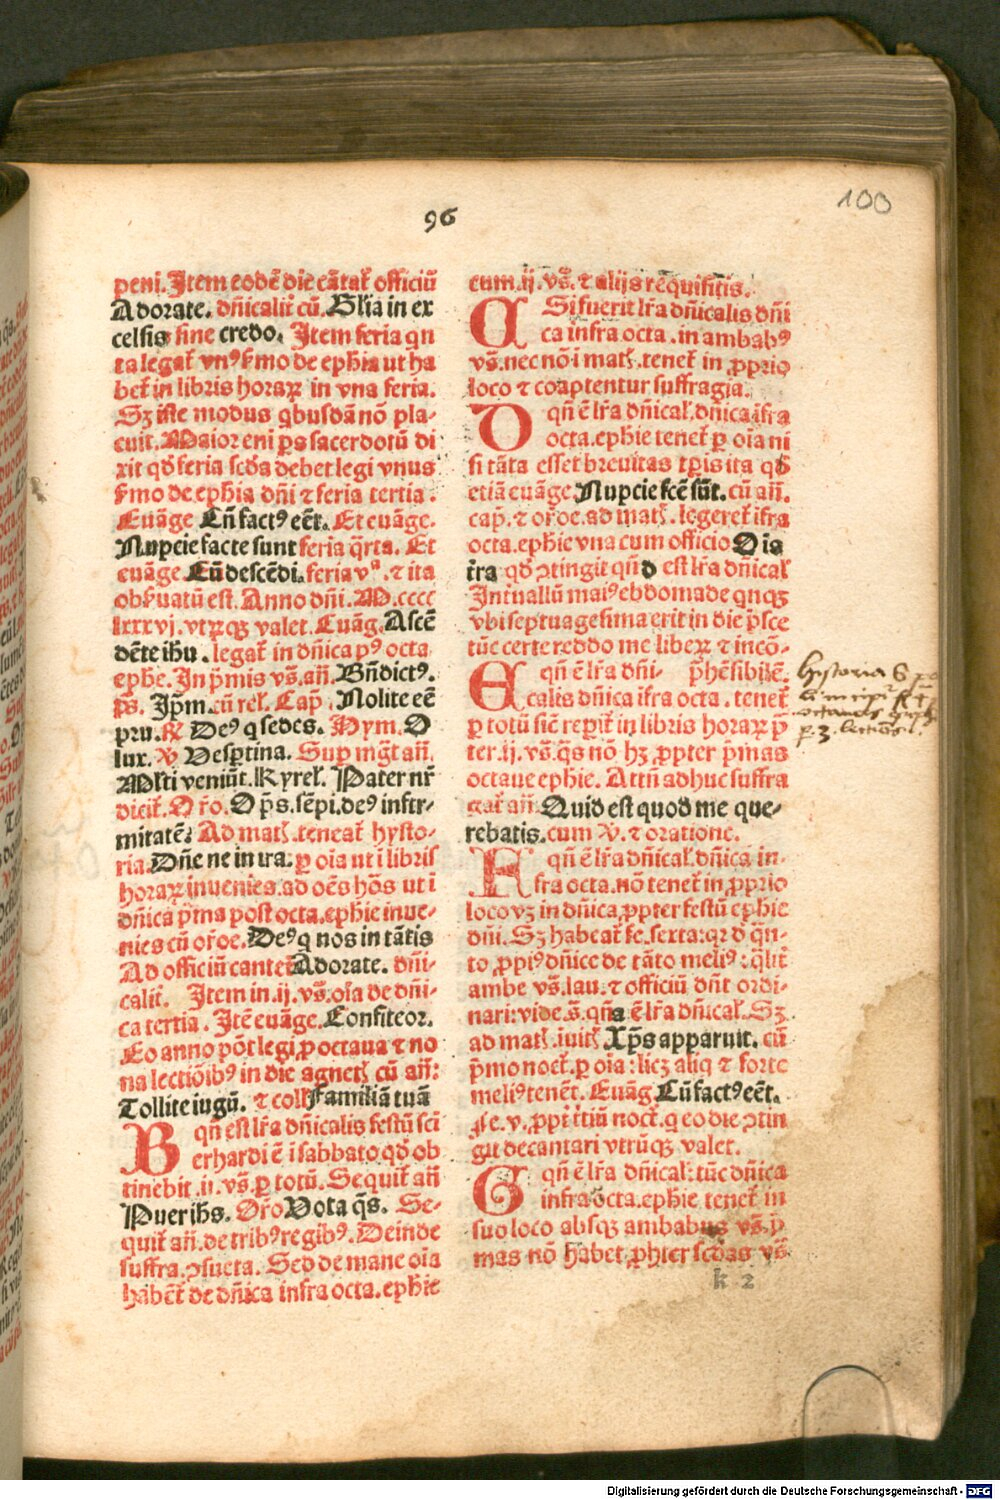 100
96
peni. Item eodē die cātat᷑ officiū
Adorate. dn̄icalit᷑ cū. Gl̄ia in ex
celsis sine credo. Item feria qn
ta legat᷑ vnꝰ s̄mo de ephia ut ha
bet᷑ in libris horaꝝ in vna feria.
Sꝫ iste modus qbusdā nō pla-
cuit. Maior eni ps sacerdotū di
xit qd̄ feria scd̄s debet legi vnus
s̄mo de ephia dn̄i ⁊ feria tertia.
Euāge Cū factꝰ eēt. Et euāge.
Nupcie facte sunt feria q̄rta. Et
euāge. Cū descēdi. feria vᵃ. ⁊ ita
obs̄uatū est. Anno dn̄i. M.cccc
lxxxvj. vtrꝫqꝫ valet. Euāg. Ascē
dēte ihu. legat᷑ in dn̄ica pꝰ octa
ephe. In pͥmis vs̄. an̄. Bn̄dictꝰ.
ps̄. Ip̄m. cū rel̄. Cap̄. Nolite eē
pru. ℟ Deꝰ q sedes. Hym. O
lux. ℣ Vesp̄tina. Sup mg̅t an̄.
Ml̄ti veniūt. Kyrel̄. Pater nr̄
dicit᷑. Or̄o. O p̄s. sēpi. deꝰ infir-
mitatē. Ad matꝭ. teneat᷑ hysto-
ria. Dn̄e ne in ira. ꝑ oīa ut i libris
horaꝝ inuenies. ad oēs hōs ut i
dn̄ica pͥma post octa. ephie inue-
nies cū or̄oe. Deꝰ q nos in tātis
Ad officiū cantet᷑ Adorate. dn̄i-
calit᷑. Item in .ij. vs̄. oīa de dn̄i-
ca tertia. Itē euāge. Confiteor.
Eo anno pōt legi ꝓ octaua ⁊ no
na lectiōibꝰ in die agnetꝭ cū an̄:
Tollite iugū. ⁊ coll̄ Familiā tuā
B qn̄ est lr̄a dn̄icalis festū sci
erhardi ē i sabbato qd̄ ob
tinebit .ii. vs̄. ꝑ totū. Sequit᷑ an̄
Pueri hs. Or̄o Vota qs̄. Se-
quit᷑ an̄. de tribꝰ regibꝰ. Deinde
suffra. ↄsueta. Sed de mane oīa
habēt᷑ de dn̄ica infra octa. ephie
cum .ij. vs̄. ⁊ alijs requisitis.
C Si fuerit lr̄a dn̄icalis dn̄i
ca infra octa. in ambabꝰ
vs̄. nec nō i matꝭ. tenet᷑ in ꝓprio
loco ⁊ coaptentur suffragia.
D qn̄ ē lr̄a dn̄ical̄. dn̄ica īfra
octa. ephie tenet᷑ ꝑ oīa ni
si tāta esset breuitas tꝑis ita qd̄
etiā euāge Nupcie fcē sūt. cū an̄.
cap̄. ⁊ or̄oe. ad matꝭ. legeret᷑ īfra
octa. ephie vna cum officio Oīa
tr̄a qd̄ ↄtingit qn̄ d est lr̄a dn̄ical̄
Intuallū maiꝰ ebdomade qnqꝫ
vbi septuagesima erit in die pͥsce
tūc certe reddo me liberꝝ ⁊ incō-
E qn̄ ē lr̄a dn̄i- p̄hēsibilē.
calis dn̄ica īfra octa. tenet᷑
ꝑ totū sic̄ repit᷑ in libris horaꝝ p̄
ter .ij. vs̄. qs̄ nō hꝫ ꝓpter pͥmas
octaue ephie. Attn̄ adhuc suffra
gat᷑ an̄. Quid est quod me que-
rebatis. cum ℣. ⁊ oratione.
F qn̄ ē lr̄a dn̄ical̄. dn̄ica in-
fra octa. nō tenet᷑ in ꝓprio
loco vꝫ in dn̄ica ꝓpter festū ephie
dn̄i. Sꝫ habeat᷑ fe. sexta: qꝛ d̄ qn̄-
to ꝓpiꝰ dn̄ice de tāto meliꝰ: q̄lꝫ
ambe vs̄. lau. ⁊ officiū dn̄t ordi-
nari: vide s̄. qn̄ a ē lr̄a dn̄ical̄. Sꝫ
ad matꝭ. iuitꝭ Xp̄s apparuit. cū
pͥmo noct᷑. ꝑ oīa: licꝫ aliq ⁊ forte
meliꝰ tenēt. Euāg Cū factꝰ eēt.
fe. v. ꝓpt̄ t̄tiū noct᷑. q eo die ↄtin
git decantari vtrūqꝫ valet.
G qn̄ ē lr̄a dn̄ical̄: tūc dn̄ica
infra octa. ephie tenet᷑ in
suo loco absqꝫ ambabus vs̄. pͥ
mas nō habet ꝓpter scd̄as vs̄
k 2
Historia
Digitalisierung gefördert durch die Deutsche Forschungsgemeinschaft - DFG